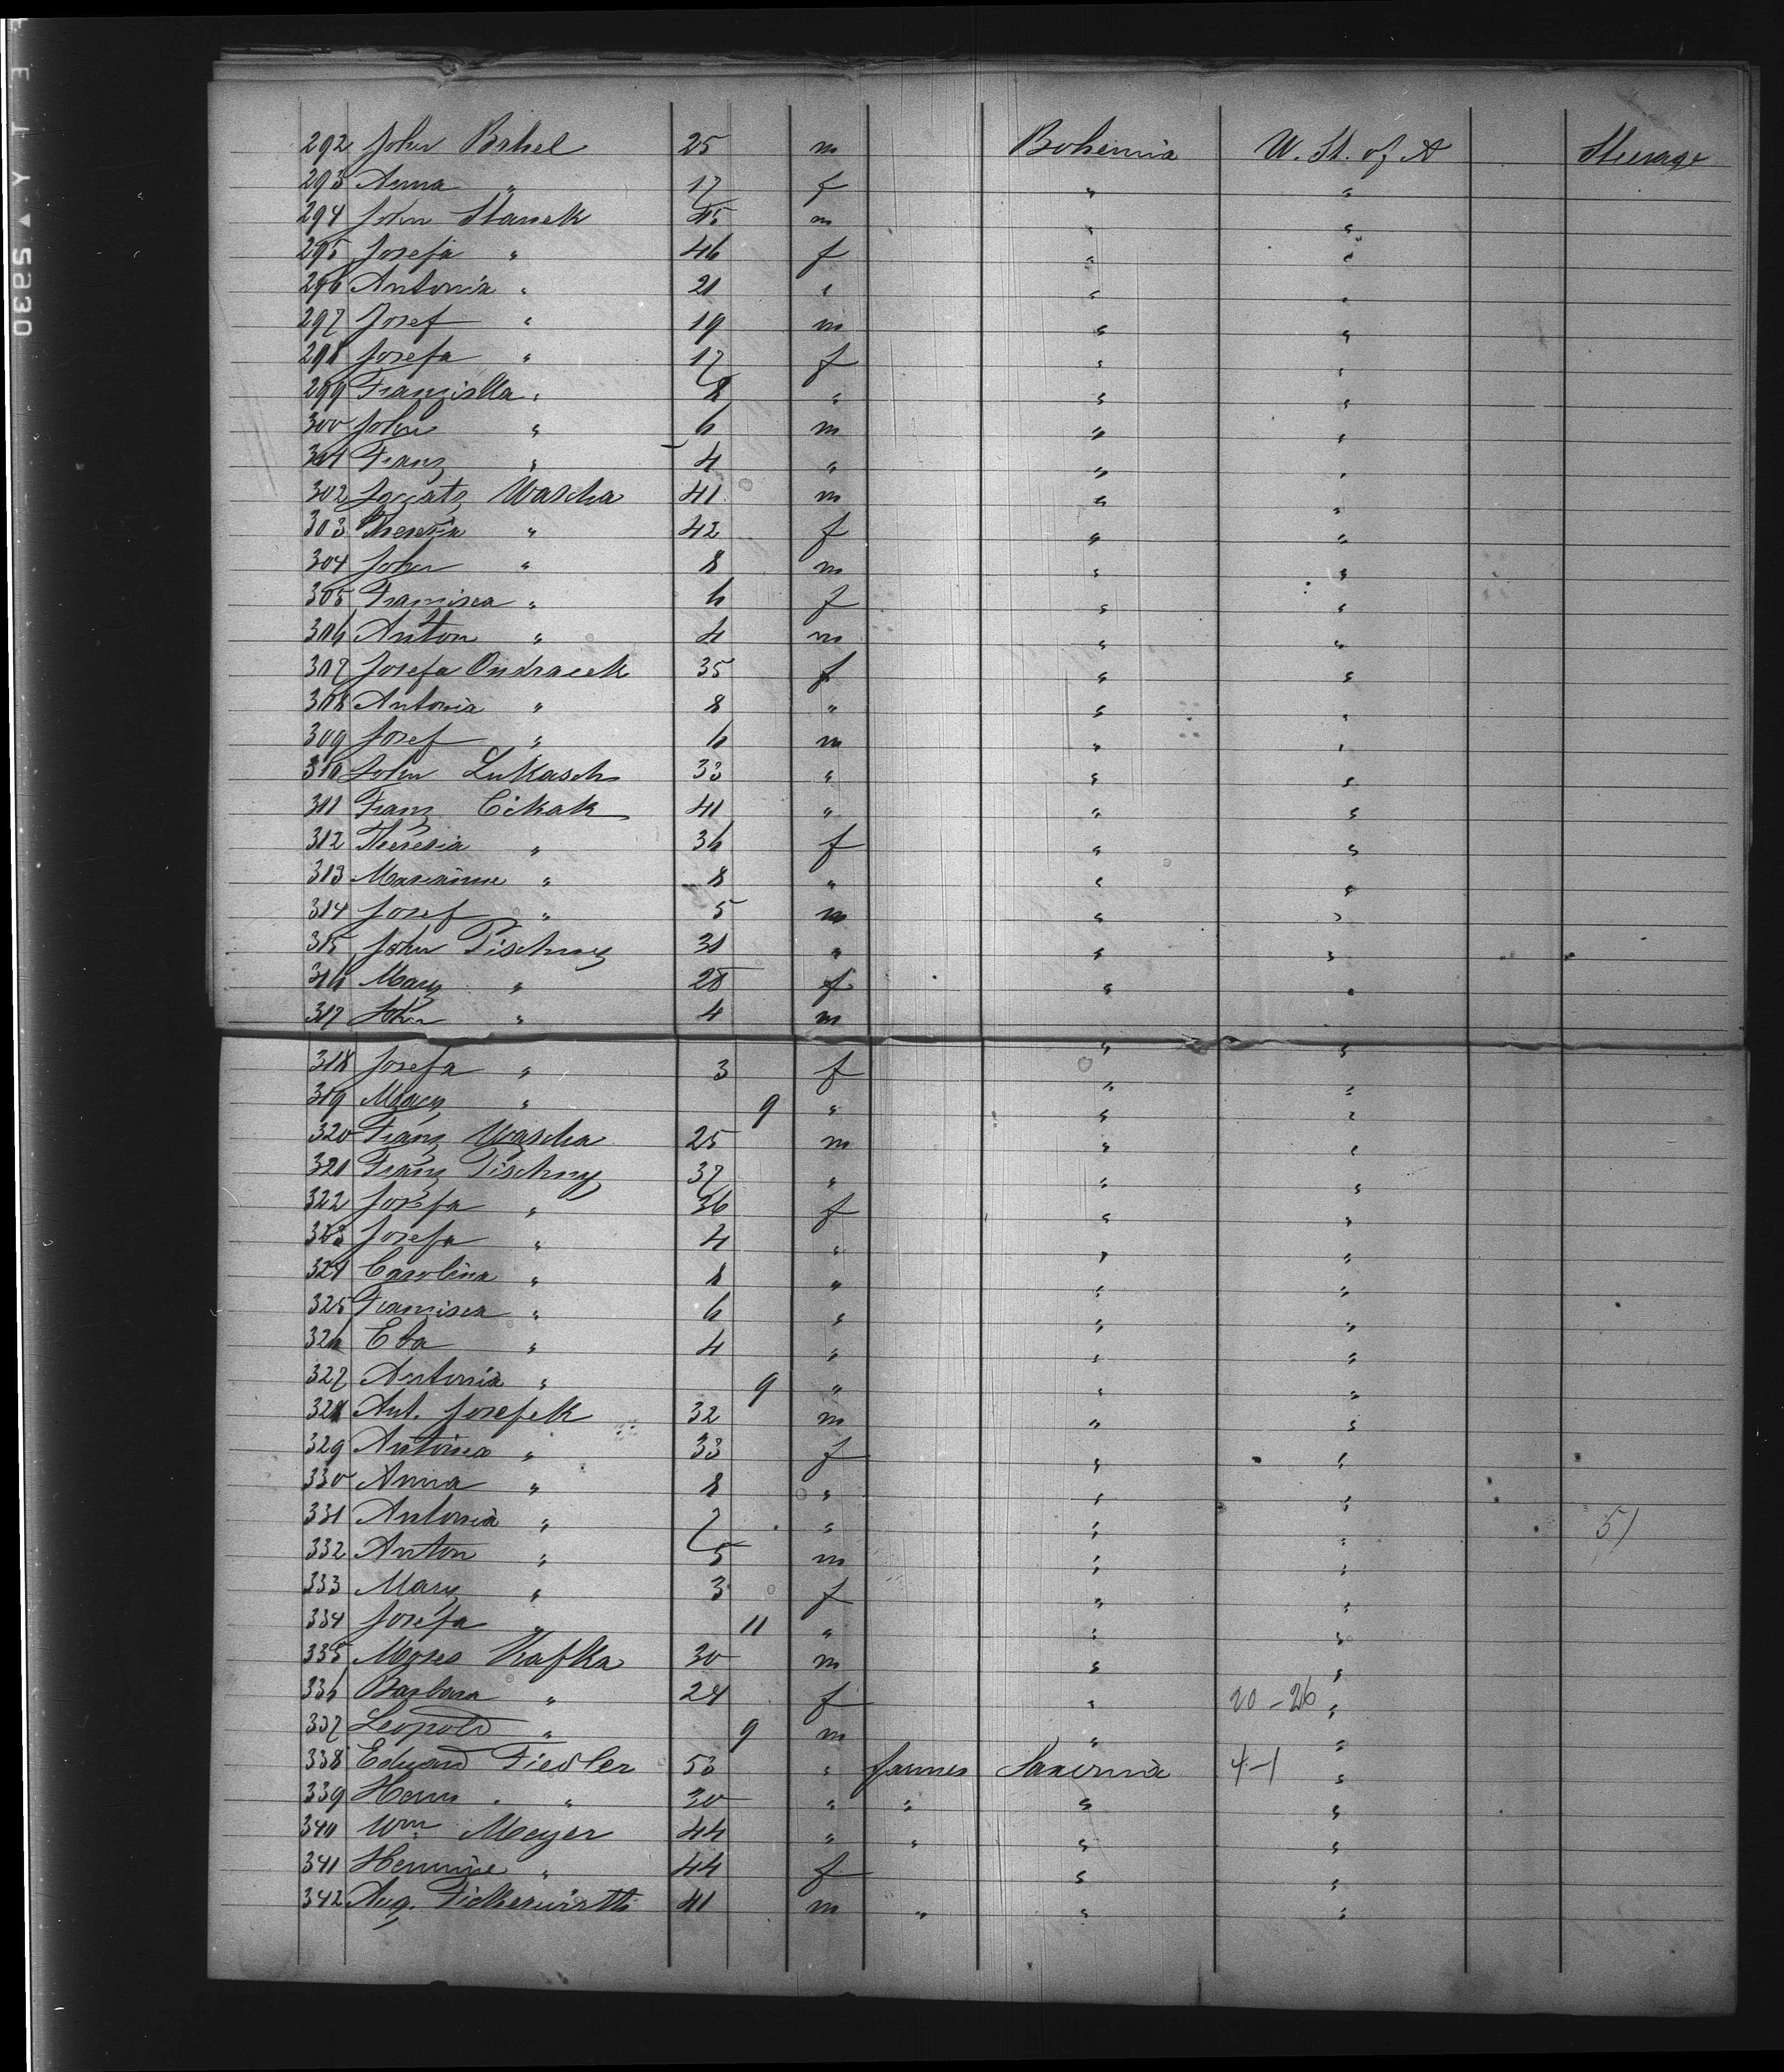 292 John Brhel 25 m Bohemia U. St. of A Steerage
293 Anna " 17 f " "
294 John Stanek 45 m " "
295 Josefa " 46 f " "
296 Antonia " 21 " " "
297 Josef " 19 m " "
298 Josefa " 17 f " "
299 Franziska " 8 " " "
300 John " 6 m " "
301 Franz " 4 " " "
302 Ignatz Wascha 41 m " "
303 Theresia " 42 f " "
304 John " 8 m " "
305 Francisca " 6 f " "
306 Anton " 4 m " "
307 Josefa Ondracek 35 f " "
308 Antonia " 8 " " "
309 Josef " 6 m " "
310 John Lukasch 33 " " "
311 Franz Cikak 41 " " "
312 Theresia " 36 f " "
313 Marianne " 8 " " "
314 Josef " 5 m " "
315 John Tischny 31 " " "
316 Mary " 28 f " "
317 John " 4 m " "
318 Josefa " 3 f " "
319 Mary " 9 " " "
320 Franz Wascha 25 m " "
321 Franz Tischny 37 " " "
322 Josefa " 36 f " "
323 Josefa " 4 " " "
324 Carolina " 8 " " "
325 Francisca " 6 " " "
326 Eva " 4 " " "
327 Antonia " 9 " " "
328 Ant. Josefek 32 m " "
329 Antonia " 33 f " "
330 Anna " 8 " " "
331 Antonia " 7 " " " 51
332 Anton " 5 m " "
333 Mary " 3 f " "
334 Josefa " 11 " " "
335 Moses Kafka 30 m " "
336 Barbara " 24 f " 20-26 "
337 Leopold " 9 m " "
338 Eduard Fiedler 53 " farmer Saxonia 4-1 "
339 Herm. " 30 " " " "
340 Wm Meyer 44 " " " "
341 Hermine " 44 f " "
342 Aug. 41 m " " "
SA930